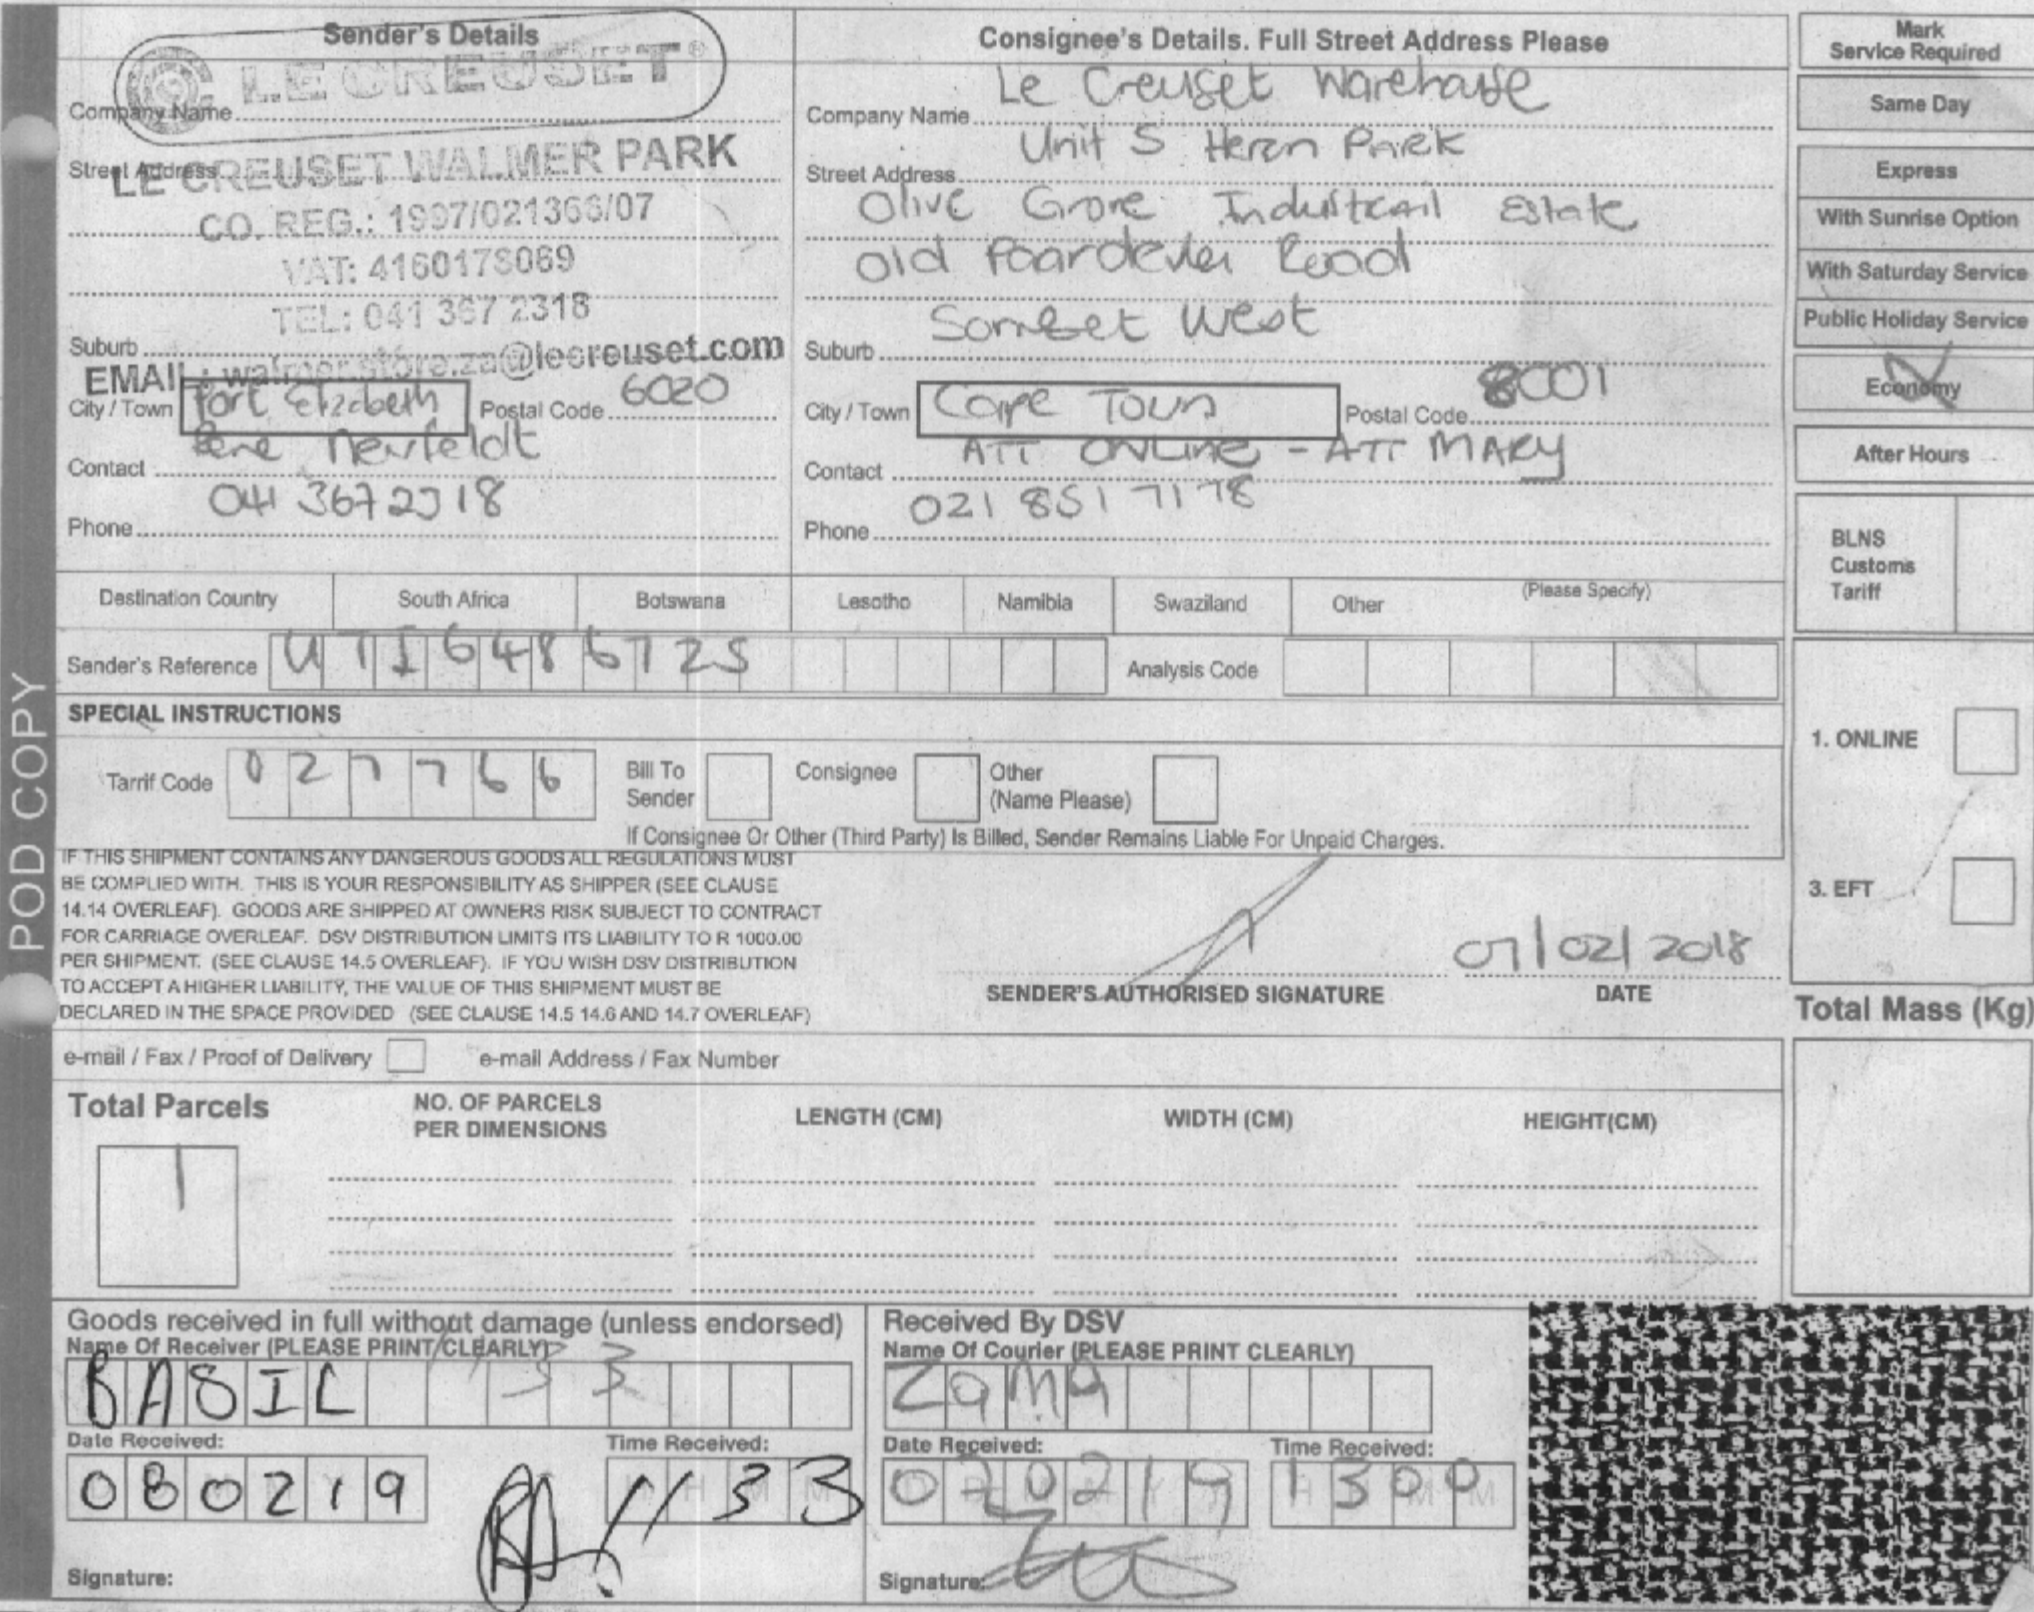 Sender's Details
LE CREUSET®
Company Name
LE CREUSET WALMER PARK
Street Address
CO. REG.: 1997/021366/07
VAT: 4160178069
TEL: 041 367 2318
Suburb
EMAIL: walmer.store.za@lecreuset.com
City / Town Port Elizabeth Postal Code 6020
Contact Rene Neufeldt
Phone 041 3672318
Consignee's Details. Full Street Address Please
Company Name Le Creuset Warehouse
Street Address Unit 5 Heron Park
Olive Grove Industrail Estate
Old Paardevlei Road
Suburb Somset West
City / Town Cape Town Postal Code 8001
Contact ATT ONLINE - ATT MARY
Phone 021 851 7178
Mark
Service Required
Same Day
Express
With Sunrise Option
With Saturday Service
Public Holiday Service
Economy
After Hours
BLNS
Customs
Tariff
Destination Country South Africa Botswana Lesotho Namibia Swaziland Other (Please Specify)
Sender's Reference UTI6486725 Analysis Code
SPECIAL INSTRUCTIONS
Tarrif Code 027766 Bill To Sender Consignee Other (Name Please)
If Consignee Or Other (Third Party) Is Billed, Sender Remains Liable For Unpaid Charges.
1. ONLINE
3. EFT
IF THIS SHIPMENT CONTAINS ANY DANGEROUS GOODS ALL REGULATIONS MUST
BE COMPLIED WITH. THIS IS YOUR RESPONSIBILITY AS SHIPPER (SEE CLAUSE
14.14 OVERLEAF). GOODS ARE SHIPPED AT OWNERS RISK SUBJECT TO CONTRACT
FOR CARRIAGE OVERLEAF. DSV DISTRIBUTION LIMITS ITS LIABILITY TO R 1000.00
PER SHIPMENT. (SEE CLAUSE 14.5 OVERLEAF). IF YOU WISH DSV DISTRIBUTION
TO ACCEPT A HIGHER LIABILITY, THE VALUE OF THIS SHIPMENT MUST BE
DECLARED IN THE SPACE PROVIDED (SEE CLAUSE 14.5 14.6 AND 14.7 OVERLEAF)
07/02/2018
SENDER'S AUTHORISED SIGNATURE DATE
Total Mass (Kg)
e-mail / Fax / Proof of Delivery e-mail Address / Fax Number
Total Parcels NO. OF PARCELS PER DIMENSIONS LENGTH (CM) WIDTH (CM) HEIGHT(CM)
1
Goods received in full without damage (unless endorsed)
Name Of Receiver (PLEASE PRINT CLEARLY)
BASIL
Date Received: Time Received:
080219 1133
Signature:
Received By DSV
Name Of Courier (PLEASE PRINT CLEARLY)
Zama
Date Received: Time Received:
070219 1300
Signature:
POD COPY